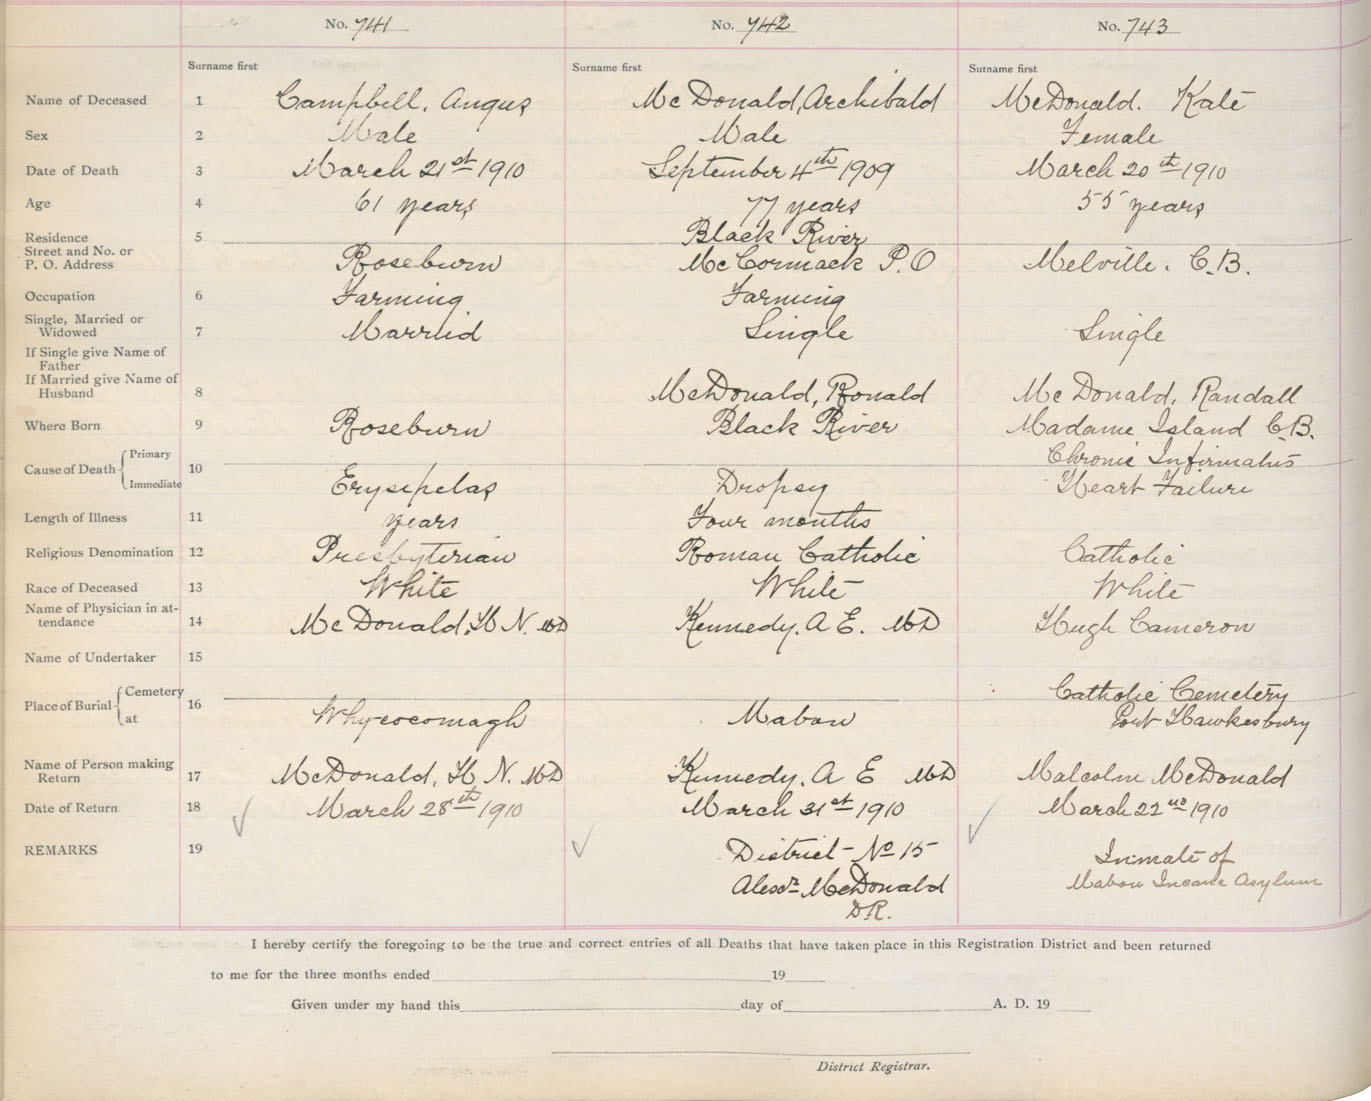 No. 741 No. 742 No. 743
Surname first Surname first Surname first
Name of Deceased 1 Campbell, Angus McDonald, Archibald McDonald. Kate
Sex 2 Male Male Female
Date of Death 3 March 21st 1910 September 4th 1909 March 20th 1910
Age 4 61 years 77 years 55 years
Residence 5 Black River
Street and No. or
P. O. Address Roseburn McCormack P.O Melville. C.B.
Occupation 6 Farming Farming
Single, Married or
Widowed 7 Married Single Single
If Single give Name of
Father
If Married give Name of
Husband 8 McDonald, Ronald McDonald, Randall
Where Born 9 Roseburn Black River Madame Island C.B.
Primary Chronic
Cause of Death 10
Immediate Erysipelas Dropsy Heart Failure
Length of Illness 11 years Four months
Religious Denomination 12 Presbyterian Roman Catholic Catholic
Race of Deceased 13 White White White
Name of Physician in at-
tendance 14 McDonald, H N. MD Kennedy. A E. MD Hugh Cameron
Name of Undertaker 15
Cemetery Catholic Cemetery
Place of Burial 16
at Whycocomagh Mabou Port Hawkesbury
Name of Person making
Return 17 McDonald, H N. MD Kennedy. A E MD Malcolm McDonald
Date of Return 18 March 28th 1910 March 31st 1910 March 22nd 1910
REMARKS 19 District No 15 Inmate of
Alexr McDonald Mabou Insane Asylum
D.R.
I hereby certify the foregoing to be the true and correct entries of all Deaths that have taken place in this Registration District and been returned
to me for the three months ended 19
Given under my hand this day of A. D. 19
District Registrar.